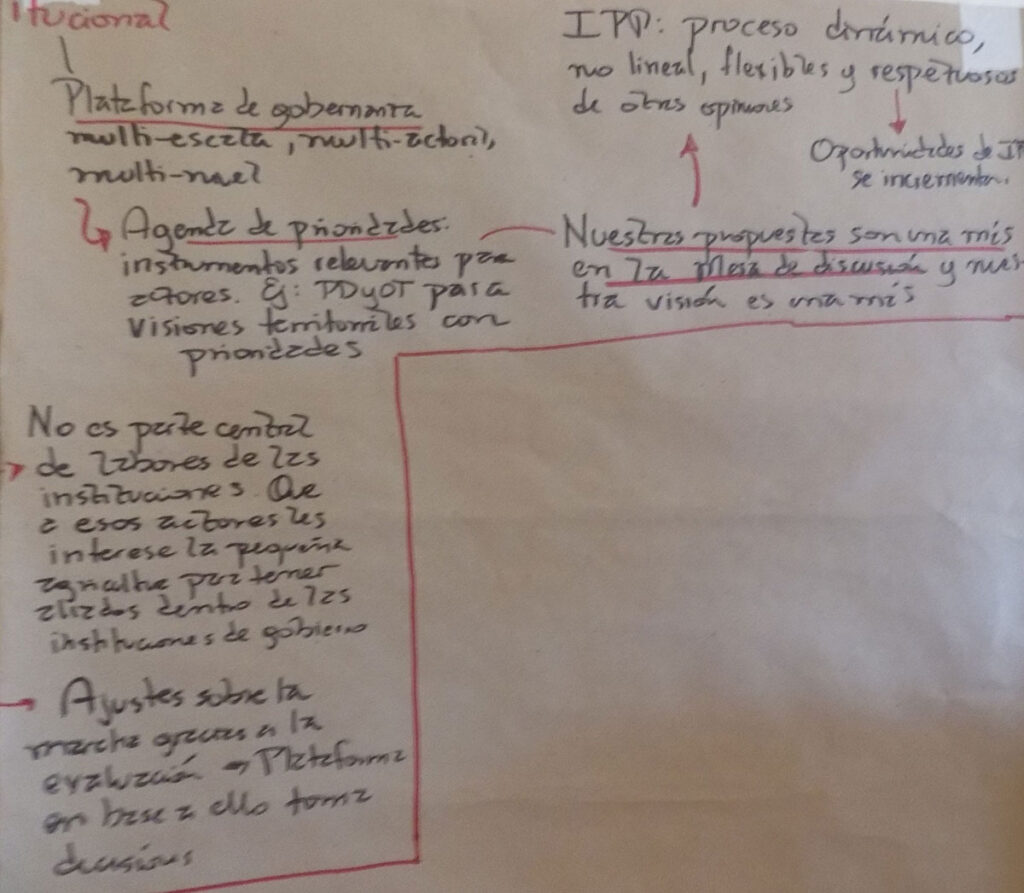 itucional
Plataforma de gobernanza
multi-escala, multi-actoral,
multi-nivel
Agenda de prioridades:
instrumentos relevantes para
actores. Ej: PDyOT para
visiones territoriales con
prioridades
IPP: proceso dinámico,
no lineal, flexibles y respetuosos
de otras opiniones
Oportunidades de IP
se incrementan.
Nuestras propuestas son una más
en la mesa de discusión y nues
tra visión es una más
No es parte central
de labores de las
instituciones. Que
a esos actores les
interese la pequeña
agricultura para tener
aliados dentro de las
instituciones de gobierno
Ajustes sobre la
marcha gracias a la
evaluación → Plataforma
en base a ello toma
decisiones